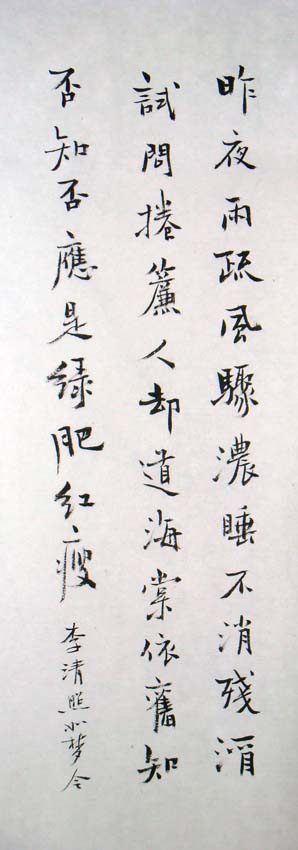 昨夜雨疏風驟濃睡不消殘酒
試問捲簾人却道海棠依舊知
否知否應是绿肥红瘦
李清照如梦令